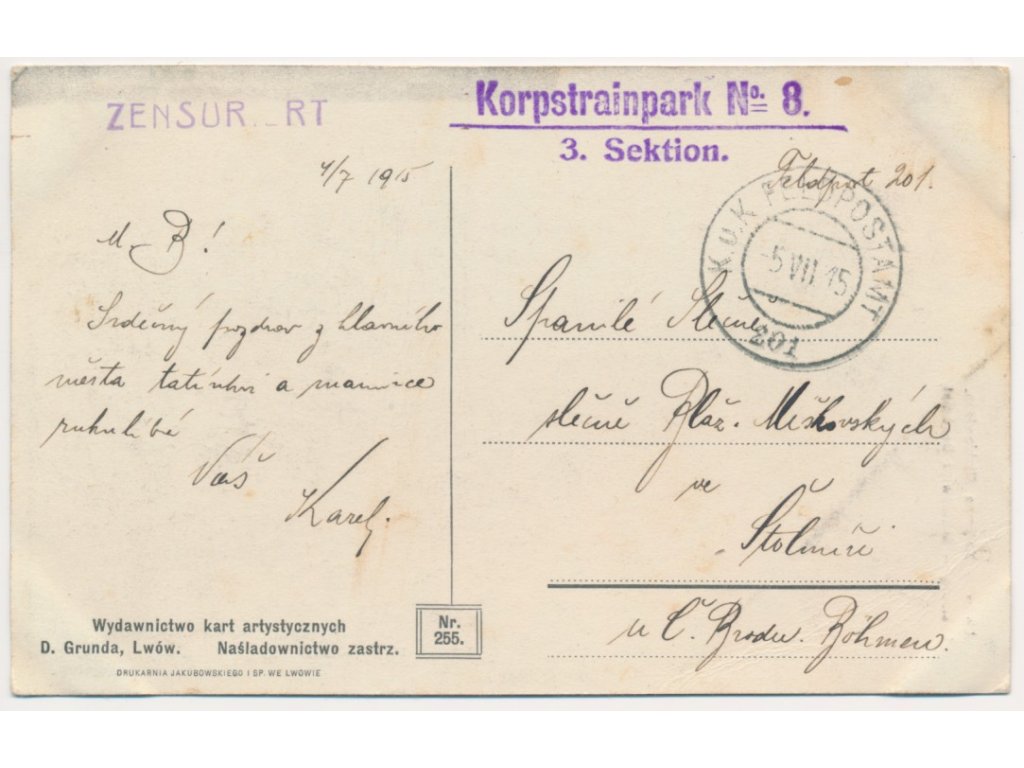 ZENSUR RT
Korpstrainpark No. 8.
3. Sektion.
4/7 1915
Feldpost 201.
K.U.K FELDPOSTAMT
-5 VII 15
201
M. B!
Srdečný pozdrav z hlavního
města tatínkovi a mamince
rukulíbá
Váš
Karel.
Spanilé Slečně
slečně Blaž. Miškovských
ve
Štolmíři
u Č. Brodu. Böhmen.
Wydawnictwo kart artystycznych
D. Grunda, Lwów. Naśladownictwo zastrz.
DRUKARNIA JAKUBOWSKIEGO I SP. WE LWOWIE
Nr.
255.